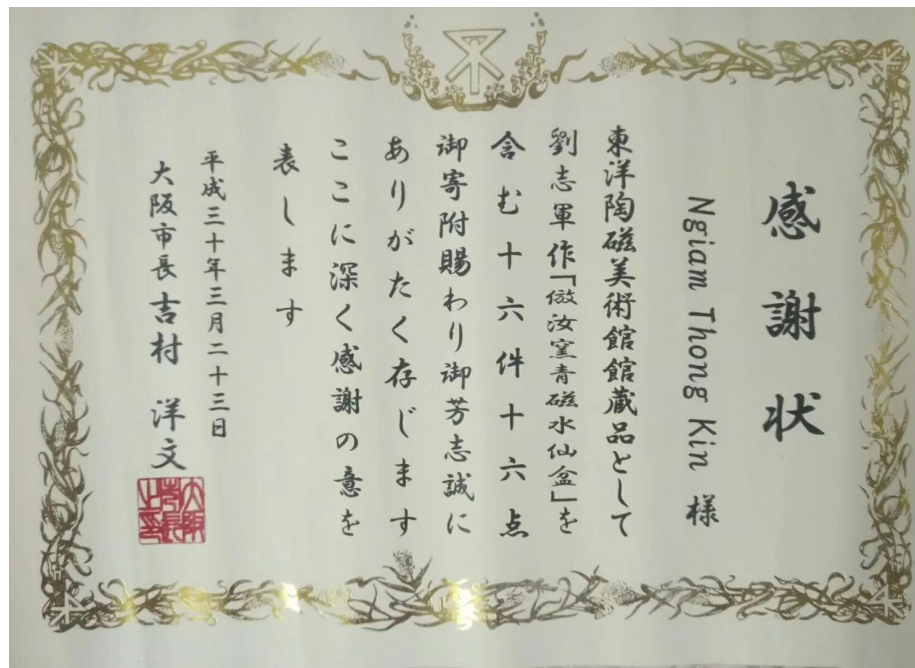 感謝状
Ngiam Thong Kin 様
東洋陶磁美術館館蔵品として
劉志軍作「倣汝窯青磁水仙盆」を
含む十六件十六点
御寄附賜わり御芳志誠に
ありがたく存じます
ここに深く感謝の意を
表します
平成三十年三月二十三日
大阪市長 吉村 洋文
大阪市長之印